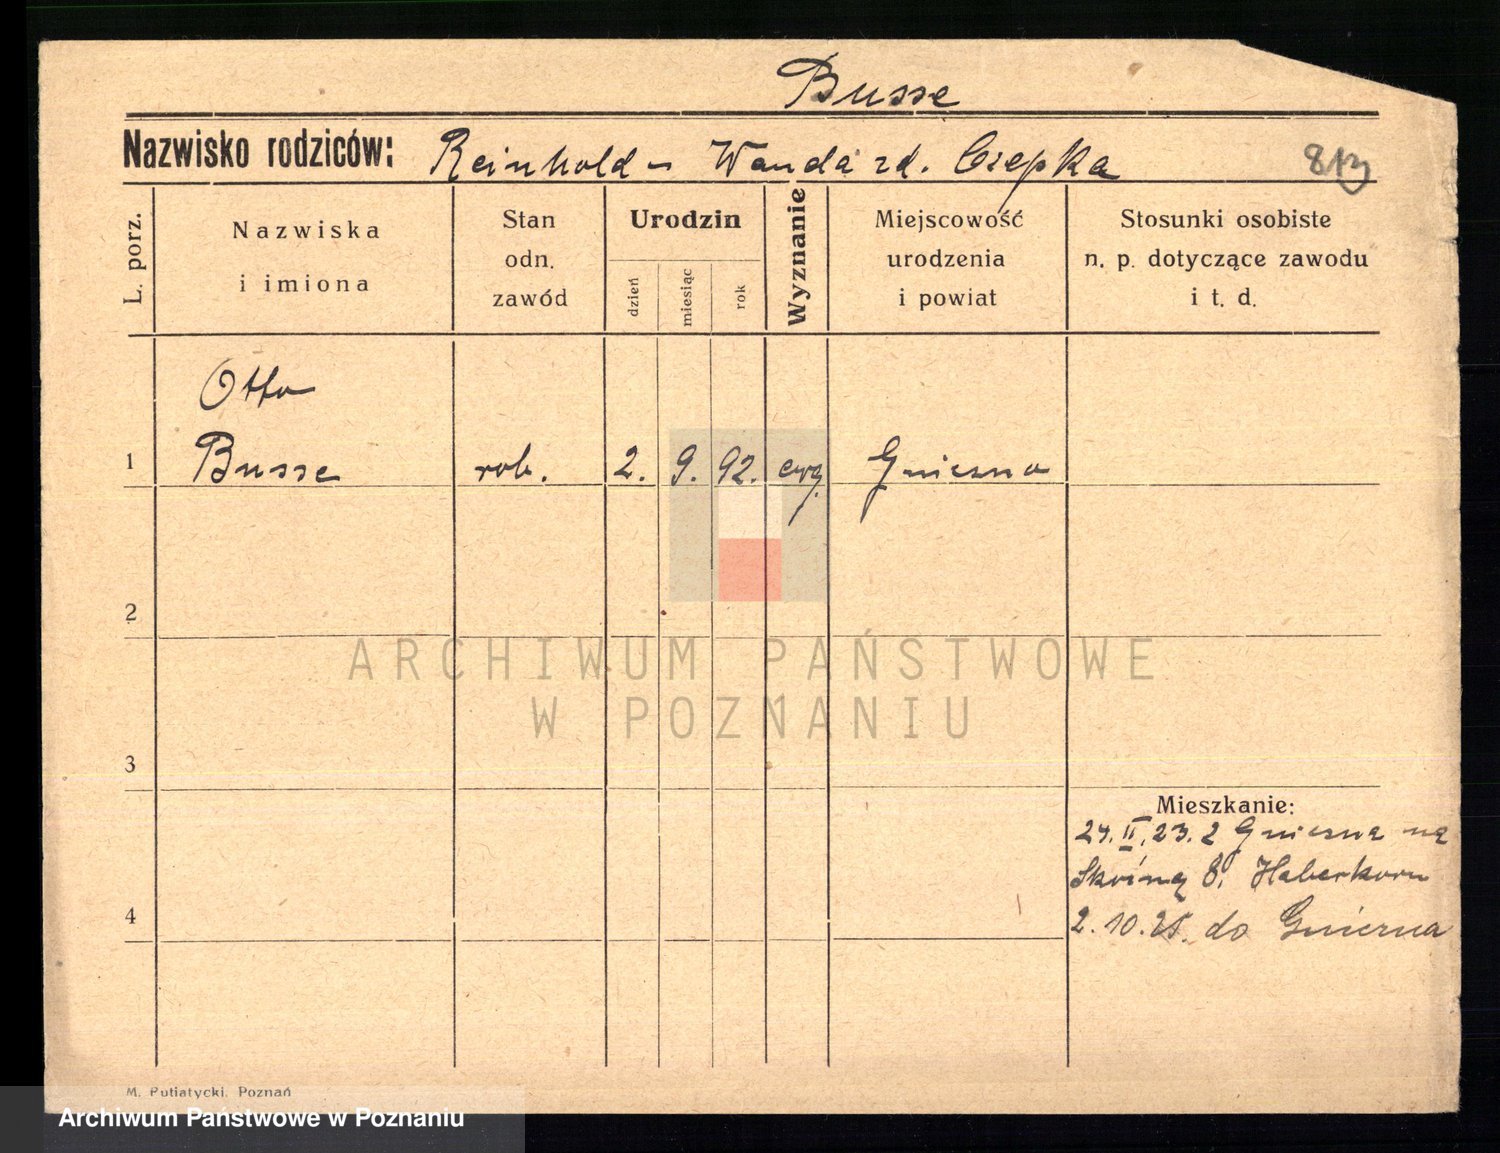 Busse
Nazwisko rodziców: Reinhold - Wanda zd. Czepka
L. porz.
Nazwiska
i imiona
Stan
odn.
zawód
Urodzin
dzień
miesiąc
rok
Wyznanie
Miejscowość
urodzenia
i powiat
Stosunki osobiste
n. p. dotyczące zawodu
i t. d.
Otto
1 Busse rob. 2. 9. 92. ewg. Gniezno
2
3
4
Mieszkanie:
24.II.23. z Gniezna na
8. Haberkorn
2. 10. 25. do Gniezna
M. Putiatycki. Poznań
ARCHIWUM PAŃSTWOWE
W POZNANIU
Archiwum Państwowe w Poznaniu